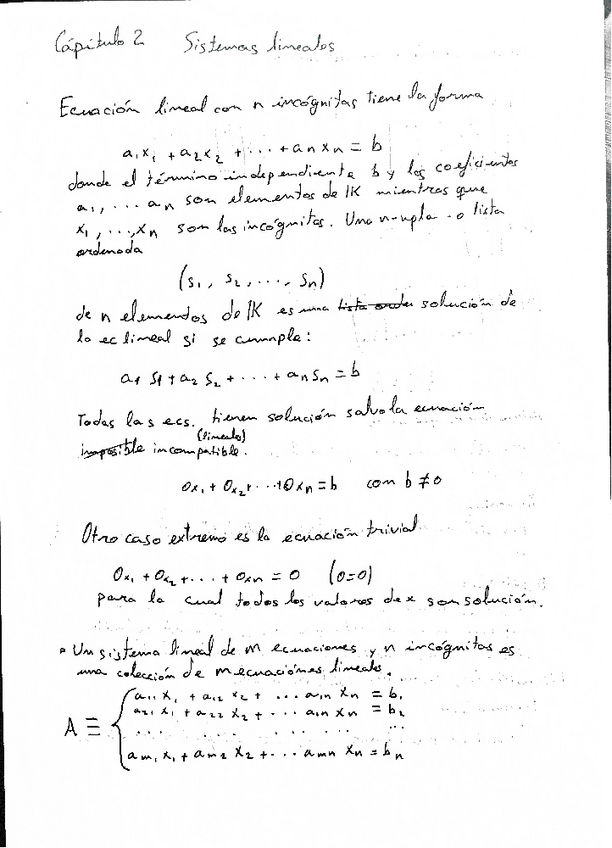 Cápitulo 2 Sistemas lineales
Ecuación lineal con n incógnitas tiene la forma
a₁x₁ + a₂x₂ + ... + anxn = b
donde el término independiente b y los coeficientes
a₁, ... an son elementos de IK mientras que
x₁, ..., xn son las incógnitas. Una n-upla o lista
ordenada
(s₁, s₂, ..., sn)
de n elementos de IK es una solución de
la ec lineal si se cumple:
a₁s₁ + a₂s₂ + ... + ansn = b
Todas las ecs. tienen solución salvo la ecuación
(lineales)
incompatible.
0x₁ + 0x₂ + ... + 0xn = b con b ≠ 0
Otro caso extremo es la ecuación trivial
0x₁ + 0x₂ + ... + 0xn = 0 (0=0)
para la cual todos los valores de x son solución.
• Un sistema lineal de m ecuaciones y n incógnitas es
una colección de m ecuaciónes lineales.
a₁₁x₁ + a₁₂x₂ + ... a₁nxn = b₁
a₂₁x₁ + a₂₂x₂ + ... a₁nxn = b₂
A ≡ { ... ... ... ...
am₁x₁ + am₂x₂ + ... amnxn = bn